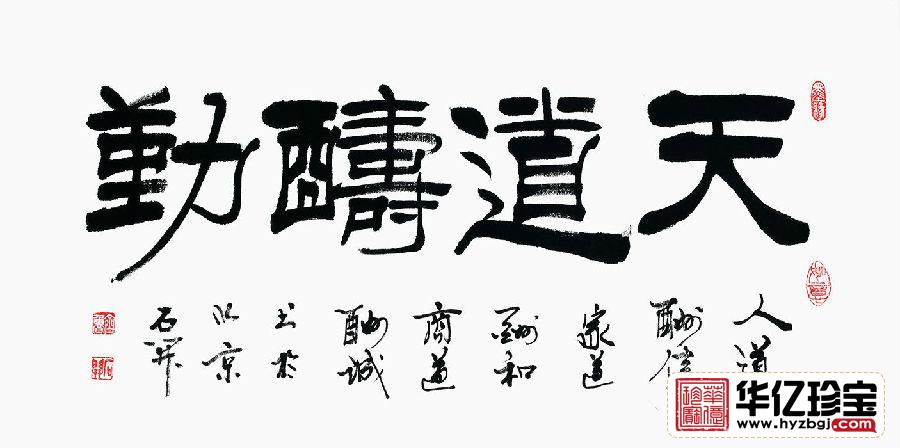 天道酬勤
人道
酬信
家道
酬和
商道
酬诚
书于
北京
石开
华亿珍宝
www.hyzbgj.com